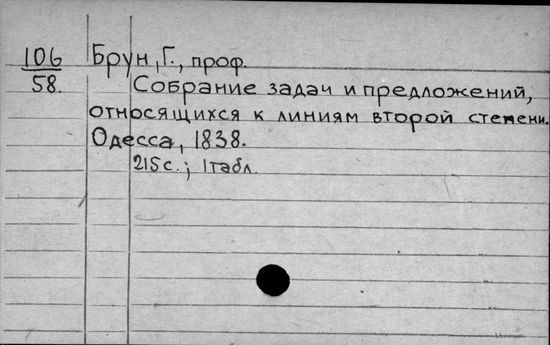 106
58.
Брун, Г., проф.
Собрание задач и предложений,
относящихся к линиям второй степени.
Одесса, 1838.
215 с.; 1 табл.